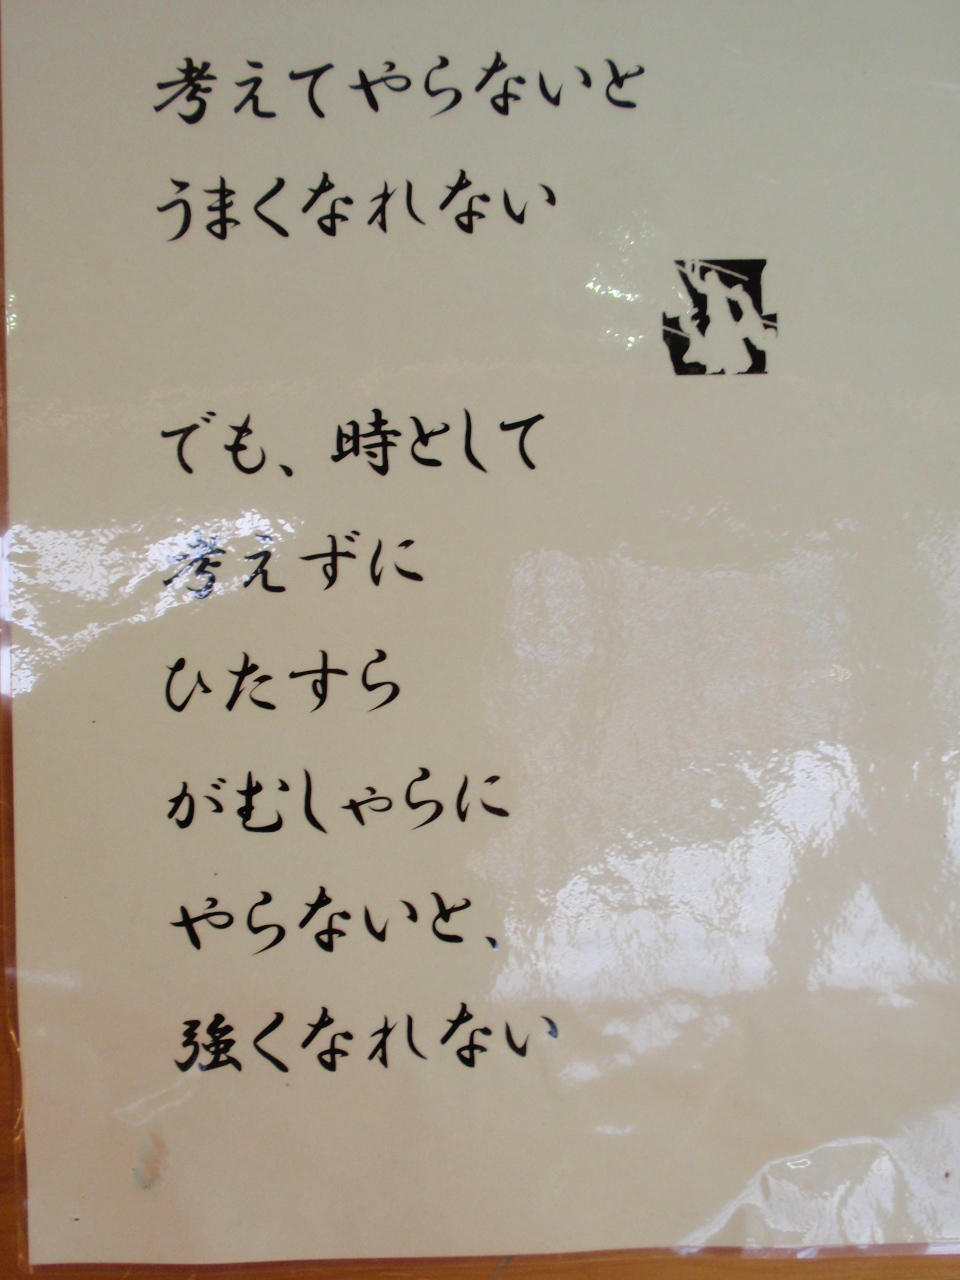 考えてやらないと
うまくなれない
でも、時として
考えずに
ひたすら
がむしゃらに
やらないと、
強くなれない